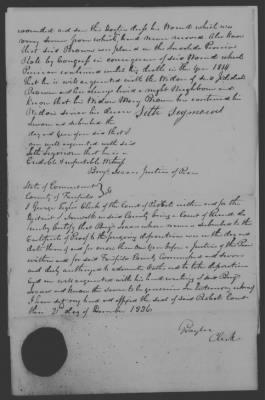 wounded and saw the Doctor dress his Wound which was
very severe from which he never recovered. Also know
that said Brown was placed on the Invalids Pension
Role by Congress in consequence of said Wound which
Pension continued until his death in the year
that he is well acquainted with the Widow of said
Brown and has always lived a nigh Neighbour and
know that his Widow Mary Brown has continued his
Widow since his decease Seth Seymour
Sworn and subscribed the
day and year first
am well acquainted with said
Seth Seymour that he is a
Credible & respectable Witness
Justice of Peace
State of Connecticut
County of Fairfield
I George Clerk of the Court of Probate within and for the
District of Norwalk in said County being a Court of Record do
hereby Certify that
Certificate of Proof to the foregoing deposition was on the day and
date thereof and for more than one year before a Justice of the Peace
within and for said Fairfield County Commissioned and Sworn
and duly authorized to administer Oaths and to take depositions
and am well acquainted with the hand writing of said
and know the same to be genuine In testimony whereof
I have set my hand and affixed the Seal of said Probate Court
this day of December 1836.
Clerk